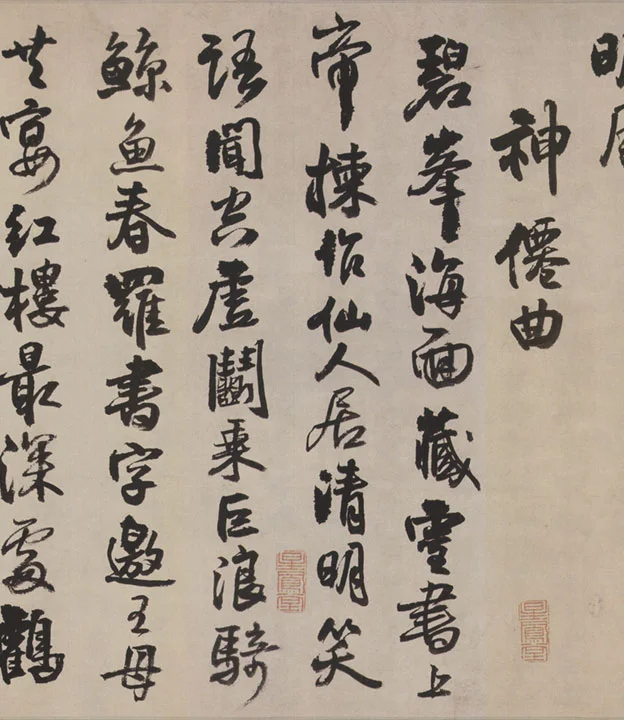 明
神僊曲
碧峯海面藏靈書上
帝揀作仙人居清明笑
語聞空虛鬭乘巨浪騎
鯨魚春羅書字邀王母
共宴紅樓最深處鶴